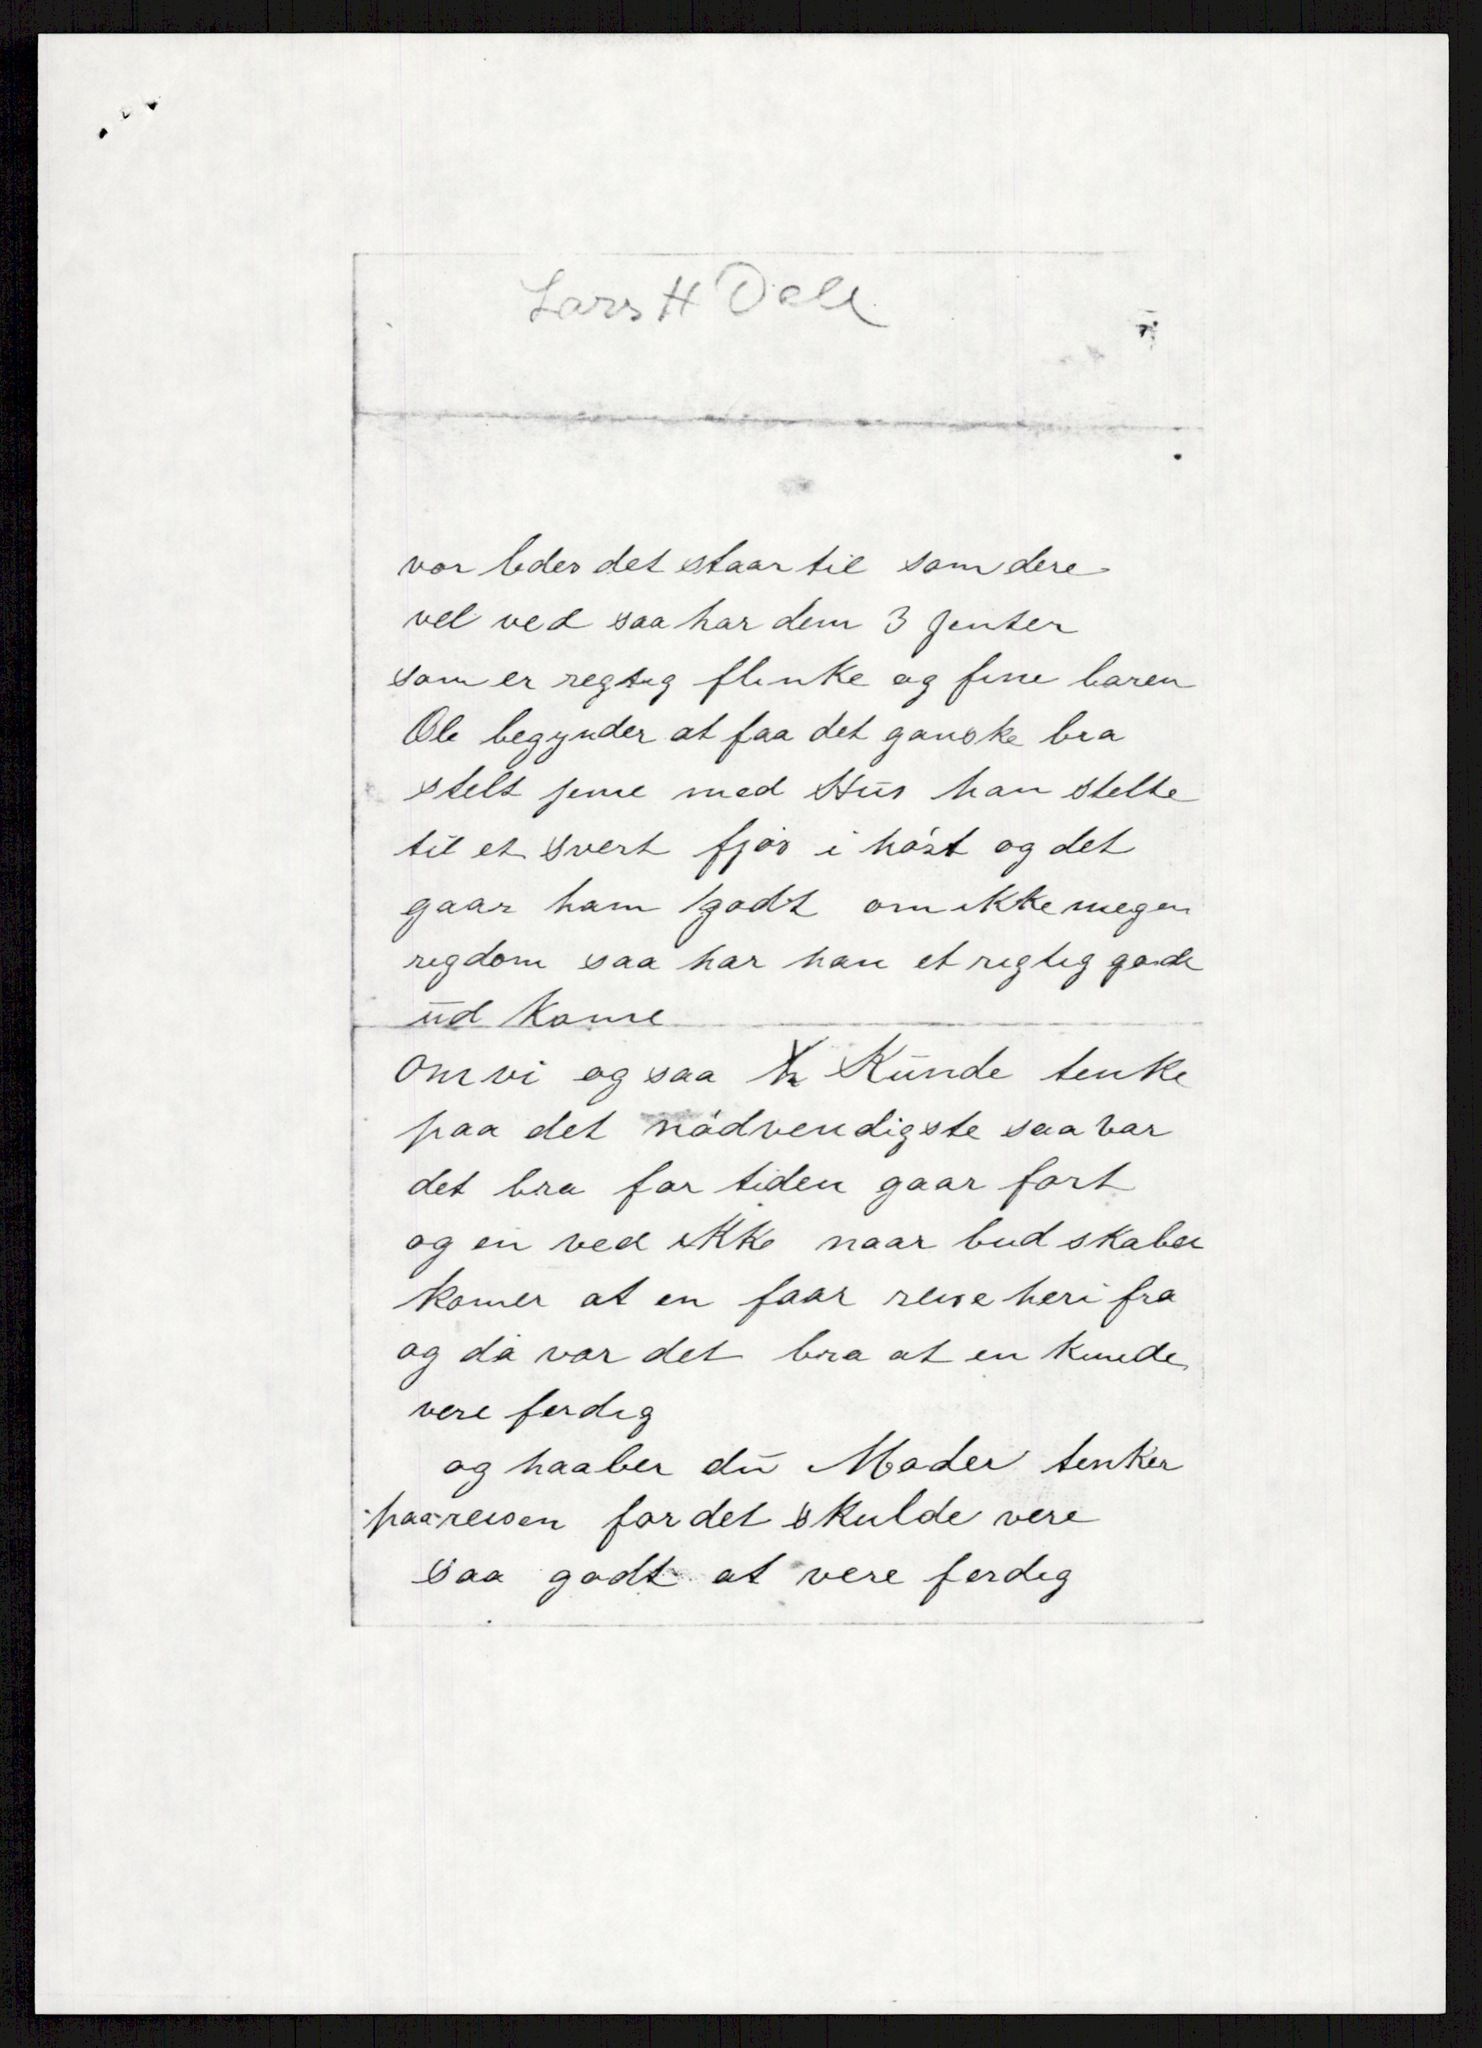 Lars H Dale
vor ledes det staar til som dere
vel ved saa har dem 3 jenter
som er regtig flinke og fine baren
Ole begynder at faa det ganske bra
stelt jeme med Hus han stelte
til et svert fjøs i høst og det
gaar ham godt om ikke megen
rigdom saa har han et rigtig gode
ud kome
om vi og saa Kunde tenke
paa det nødvendigste saa var
det bra for tiden gaar fort
og en ved ikke naar bud skaber
komer at en faar reise heri fra
og da var det bra at en kunde
vere ferdig
og haaber du Moder tenker
paa reisen for det skulde vere
saa godt at vere ferdig